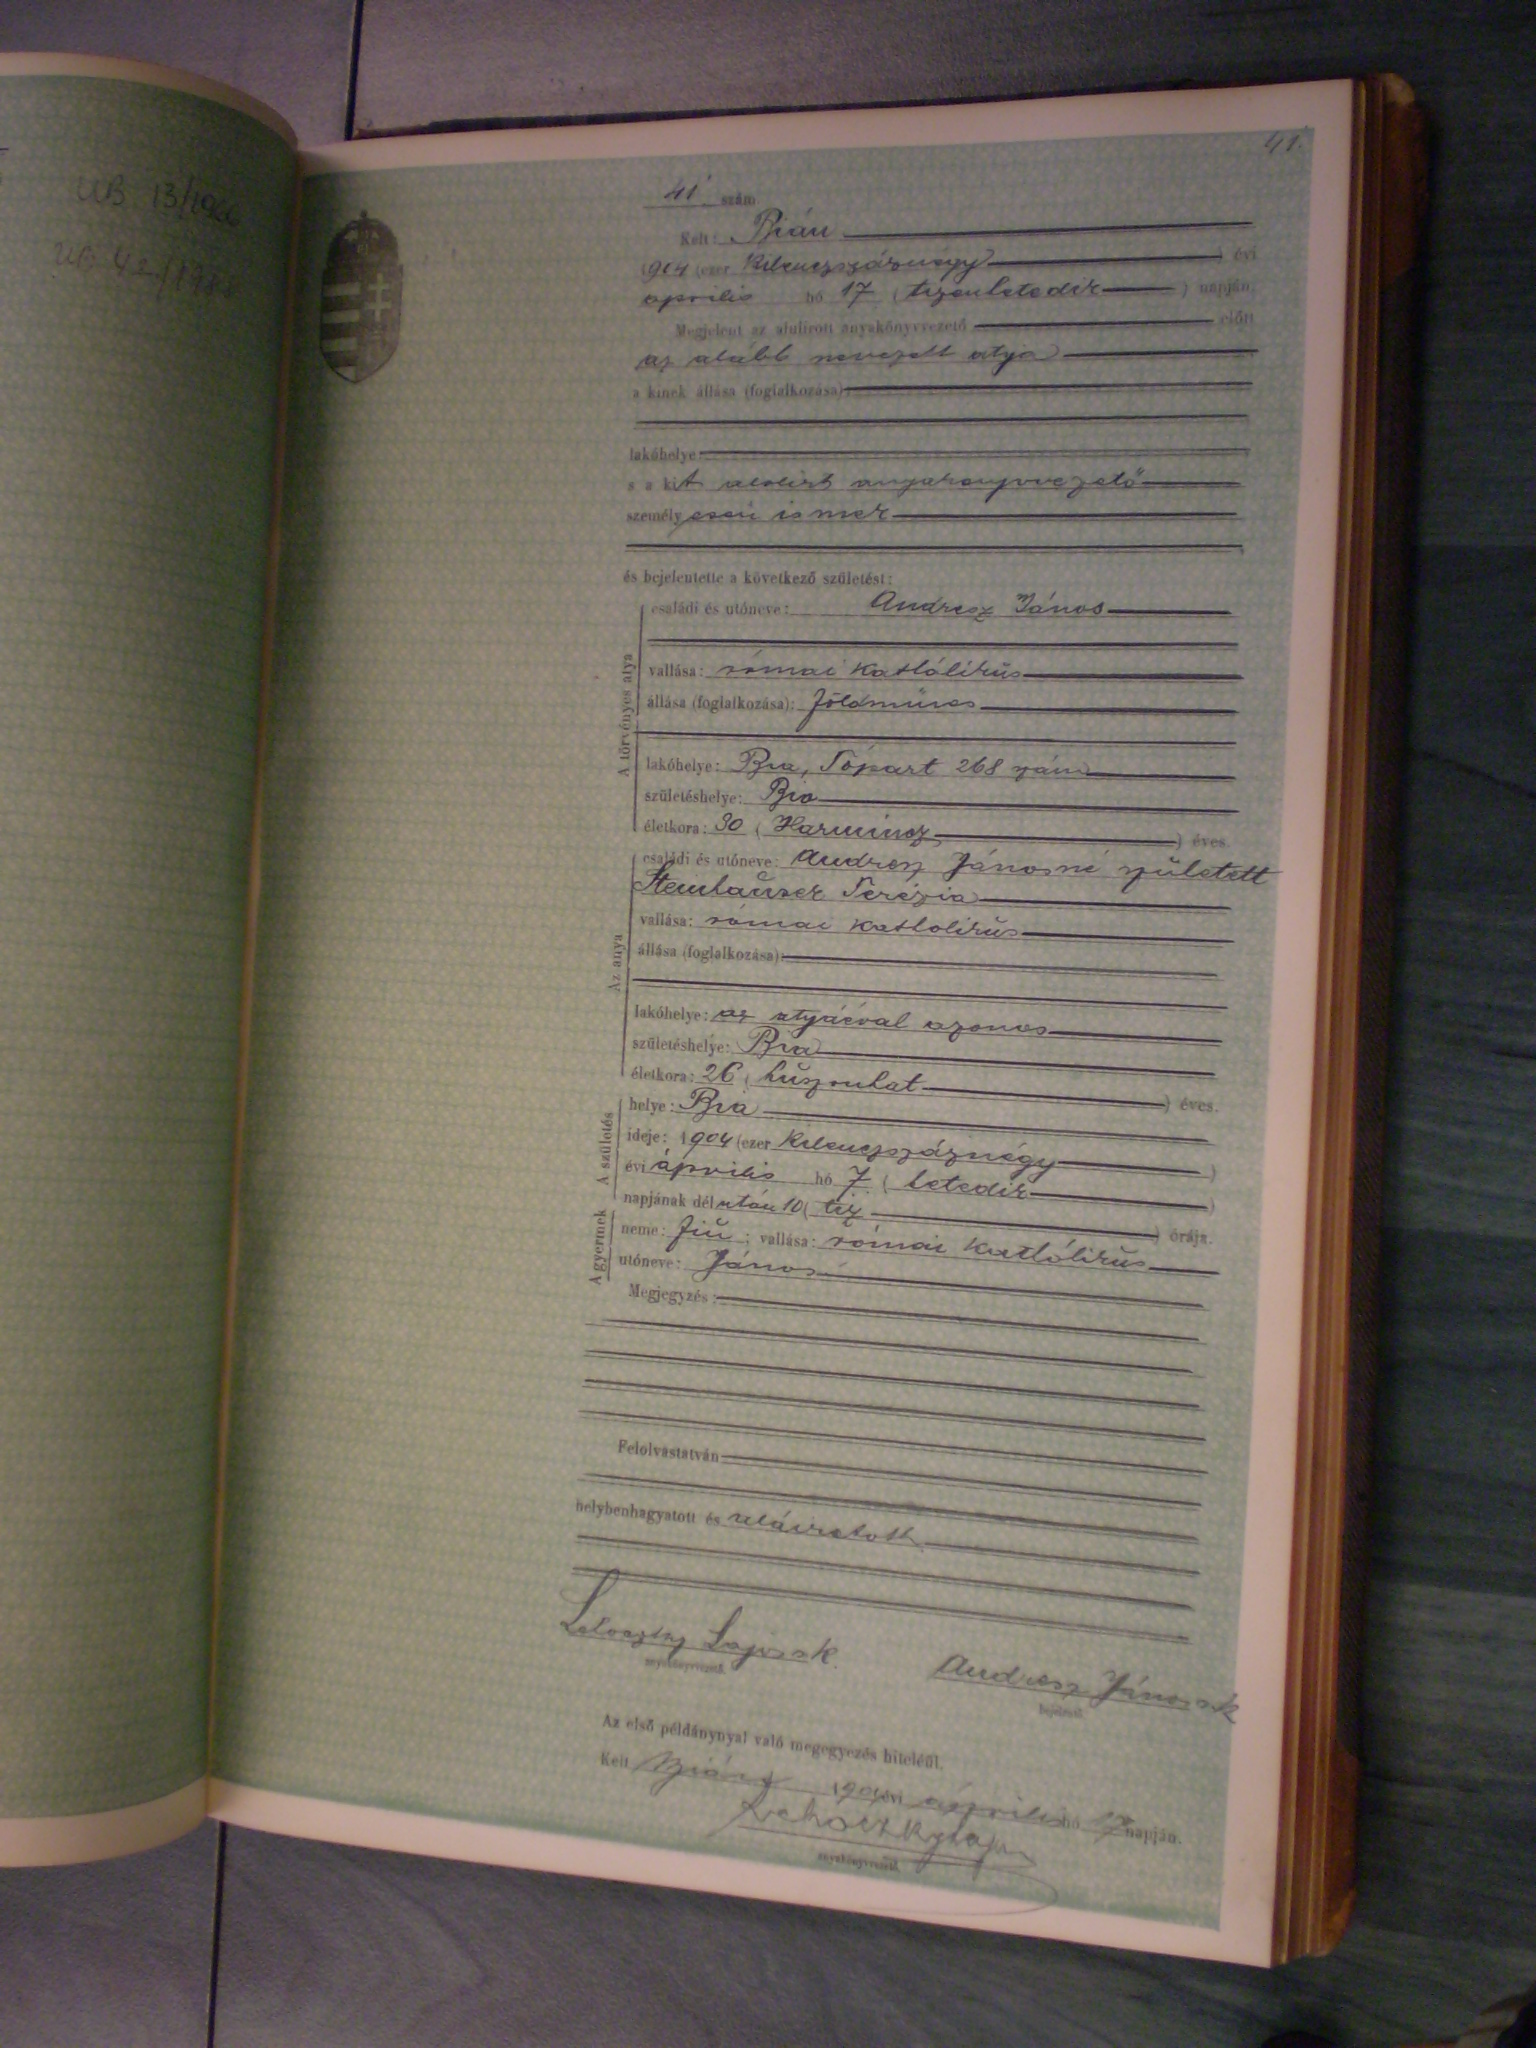 UB 13/1966
UB
41.
41 szám
Kelt: Bián
1904 (ezer kilenczszáznégy) évi
április hó 17 (tizenhetedik) napján.
Megjelent az alulirott anyakönyvvezető előtt
az alább nevezett atya
a kinek állása (foglalkozása)
lakóhelye
s a kit alulirt anyakönyvvezető
személyesen ismer
és bejelentette a következő születést:
A törvényes atya
családi és utóneve: Andresz János
vallása: római katholikus
állása (foglalkozása): földmüves
lakóhelye: Bia, Tópart 268 szám
születéshelye: Bia
életkora: 30 (Harmincz) éves.
Az anya
családi és utóneve: Andresz Jánosné született
Steinhauser Terézia
vallása: római katholikus
állása (foglalkozása)
lakóhelye: az atyáéval azonos
születéshelye: Bia
életkora: 26 (huszonhat) éves.
A születés
helye: Bia
ideje: 1904 (ezer kilenczszáznégy)
évi április hó 7 (hetedik)
napjának délután 10 (tiz) órája.
A gyermek
neme: fiú; vallása: római katholikus
utóneve: János
Megjegyzés:
Felolvastatván
helybenhagyatott és aláiratott
Lehoczky Lajos sk. Andresz János sk
anyakönyvvezető. bejelentő.
Az első példánynyal való megegyezés hiteléül.
Kelt Bián 1904 évi április hó 17 napján.
Lehoczky Lajos
anyakönyvvezető.